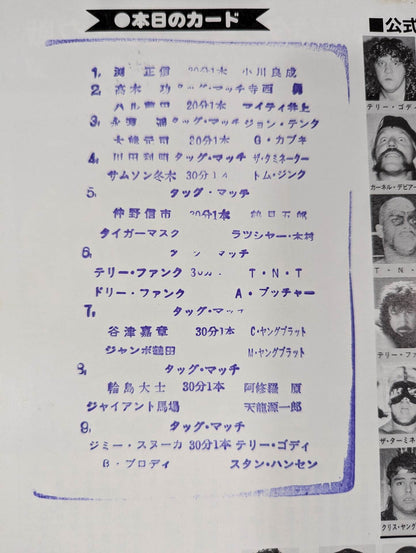 ●本日のカード
1. 渕 正信 30分1本 小川良成
2. 高木 功 タッグ・マッチ 寺西 勇
ハル薗田 20分1本 マイティ井上
3. タッグ・マッチ ジョン・テンタ
大熊元司 20分1本 G・カブキ
4. 川田利明 タッグ・マッチ ザ・タミネーター
サムソン冬木 30分1 トム・ジンク
5. タッグ・マッチ
仲野信市 鶴見五郎
タイガーマスク ラッシャー・木村
6. マッチ
テリー・ファンク T・N・T
ドリー・ファンク A・ブッチャー
7. タッグ・マッチ
谷津嘉章 30分1本 C・ヤングブラット
ジャンボ鶴田 M・ヤングブラット
8. タッグ・マッチ
輪島大士 30分1本 阿修羅 原
ジャイアント馬場 天龍源一郎
9. タッグ・マッチ
ジミー・スヌーカ 30分1本 テリー・ゴディ
B・ブロディ スタン・ハンセン
■公式
テリー・ゴデ
カーネル・デビアー
T・N・T
テリー・ファ
ザ・ターミネ
クリス・ヤング